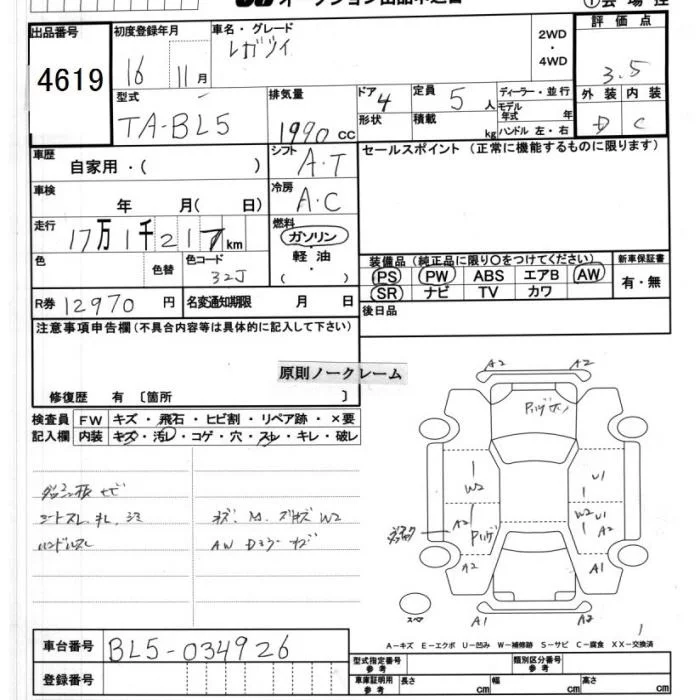 オークション出品申込書
① 会場控
出品番号
4619
初度登録年月
16 11月
車名・グレード
レガシィ
2WD・4WD
評価点
3.5
外装 内装
D C
型式
TA-BL5
排気量
1990 cc
ドア 4
形状
定員 5 人
積載 kg
ディーラー・並行
モデル年式 年
ハンドル 左・右
車歴
自家用・( )
シフト
A・T
セールスポイント (正常に機能するものに限ります)
車検
年 月( 日)
冷房
A・C
走行
17万1千217km
燃料
ガソリン
軽油
・( )
色
色替
色コード
32J
装備品 (純正品に限り○をつけてください)
新車保証書
PS PW ABS エアB AW
SR ナビ TV カワ
有・無
R券 12970円
名変通知期限 月 日
後日品
注意事項申告欄(不具合内容等は具体的に記入して下さい)
原則ノークレーム
修復歴 有 〔箇所 〕
検査員記入欄
FW キズ・飛石・ヒビ割・リペア跡・×要
内装 キズ・汚レ・コゲ・穴・スレ・キレ・破レ
シートスレ、キレ、シミ
ハンドルスレ
W2
AW
A2 A2
W2
U1
W2 U1
A2
A2
A2 A1
スペア
A1 A2
1
A-キズ E-エクボ U-凹み W-補修跡 S-サビ C-腐食 XX-交換済
車台番号
BL5-034926
登録番号
型式指定番号 参考
類別区分番号 参考
車庫証明用 参考
長さ cm 幅 cm 高さ cm